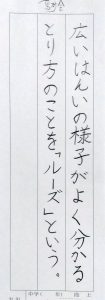 広いはんいの様子がよく分かる
とり方のことを「ルーズ」という。